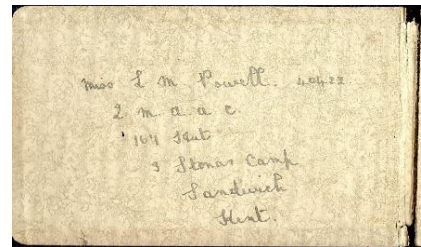 Miss L M Powell. 40422
Q. m. a. a. c.
164 Hut
3 Stonar Camp
Sandwich
Kent.